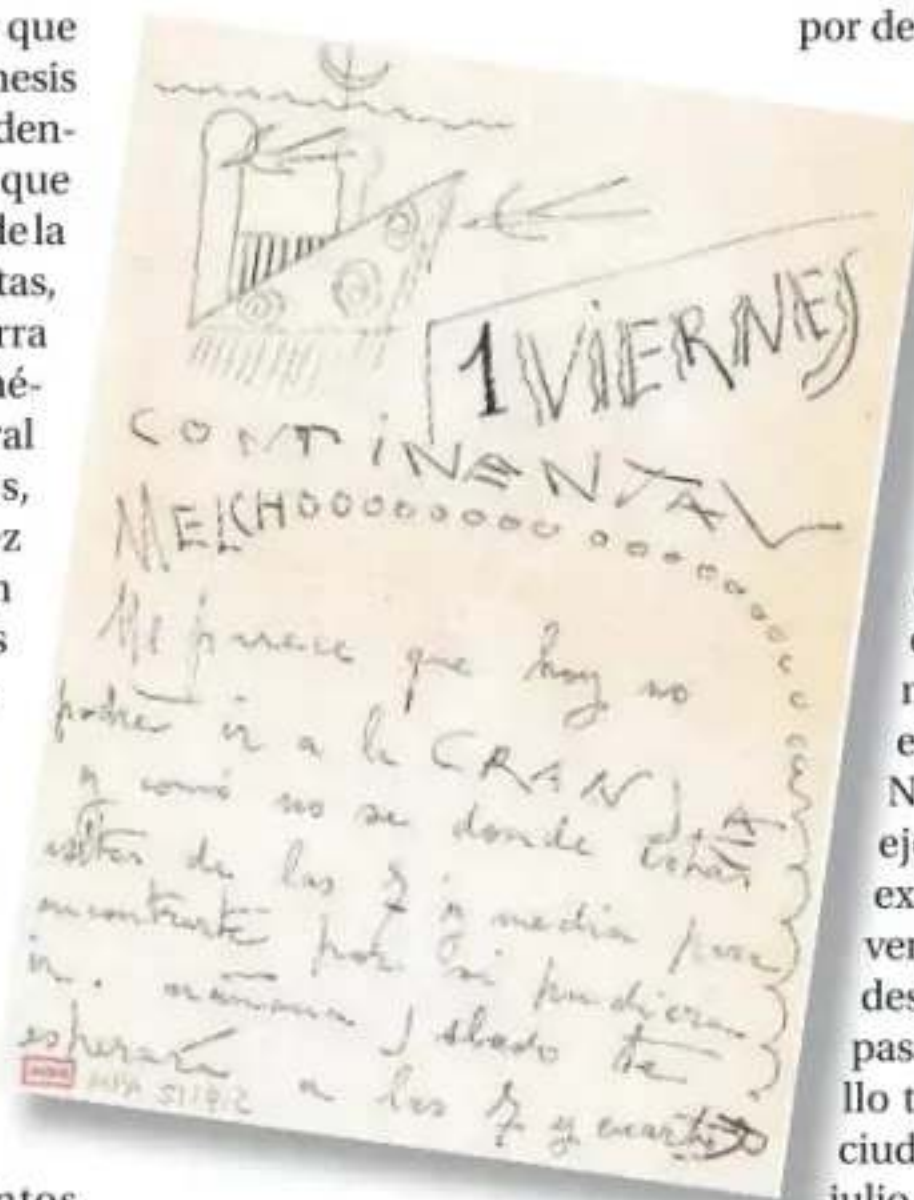 que
por de
nesis
den-
que
de la
tas,
rra
né-
ral
s,
z
n
s
1 VIERNES
CONTINENTAL
MELCHOOOOOOOOO OOOOOOOO
Me parece que hoy no
podré ir a la GRANJA
y como no se donde
antes de las 7 y media para
encontrarte por si pudiera
ir. mañana Sabado te
esperaré a las 7 y cuarto
e
r
e
N
eje
ex
ver
des
pas
llo t
ciud
julio
ntos